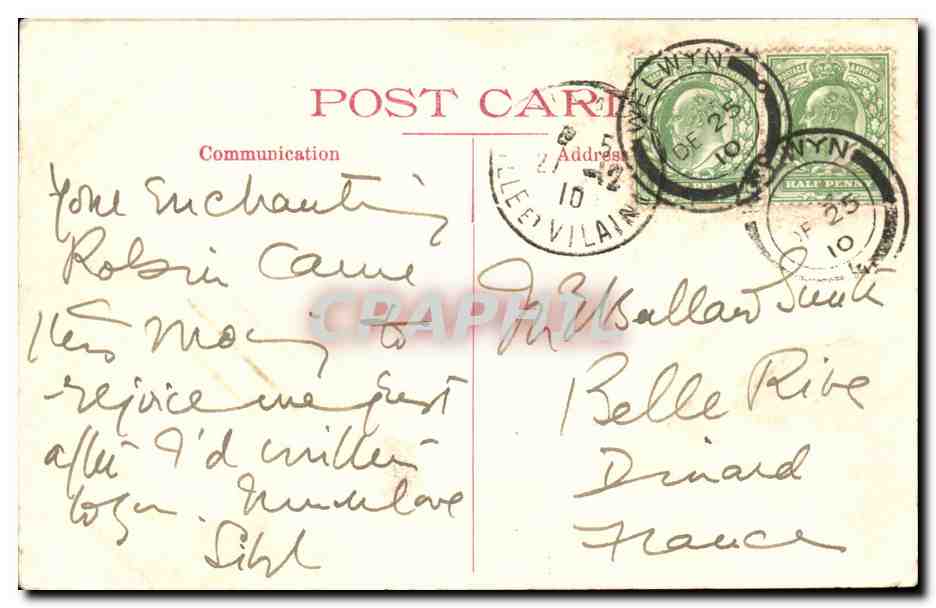 POST CARD
Communication
Address
Your Enchanting
Robin Came
this Morning to
rejoice me just
after I'd written
to you. Much love
Sibyl
Ballard Smith
Belle Rive
Dinard
France
WELWYN
DE 25
10
WELWYN
DE 25
10
27 - 12
10
ILLE ET VILAINE
HALF PENNY
CPAPHIL